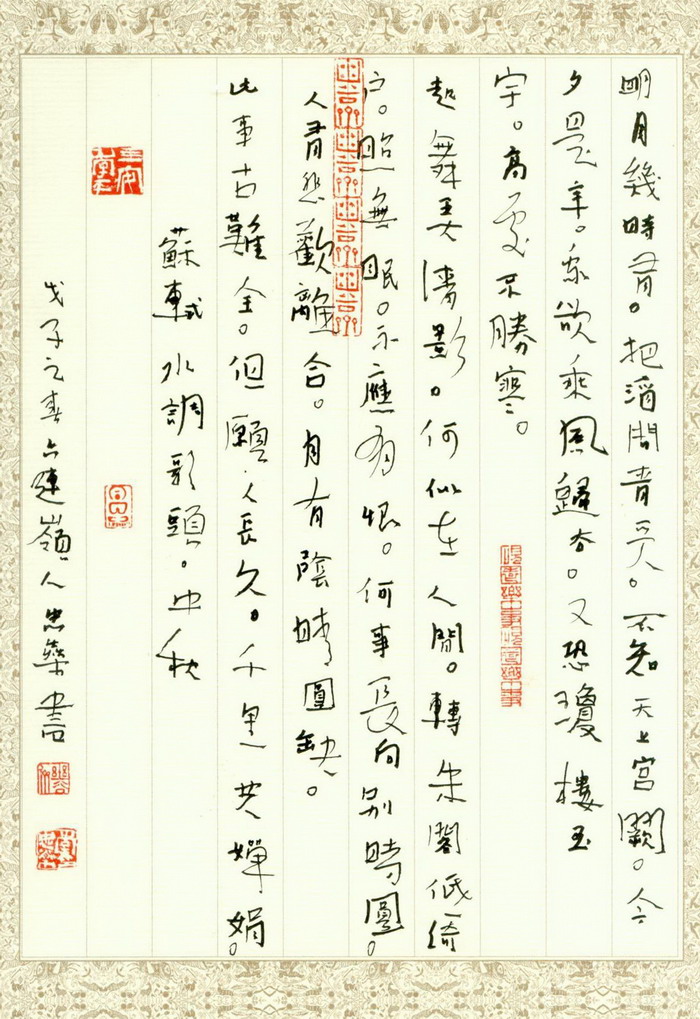 明月幾時有。把酒問青天。不知天上宮闕。今
夕是年。我欲乘風歸去。又恐瓊樓玉
宇。高處不勝寒。
起舞弄清影。何似在人間。轉朱閣低綺
户。照無眠。不應有恨。何事長向別時圓。
人有悲歡離合。月有陰晴圓缺。
此事古難全。但願人長久。千里共嬋娟。
蘇軾水調歌頭。中秋
戊子之春六連嶺人忠書